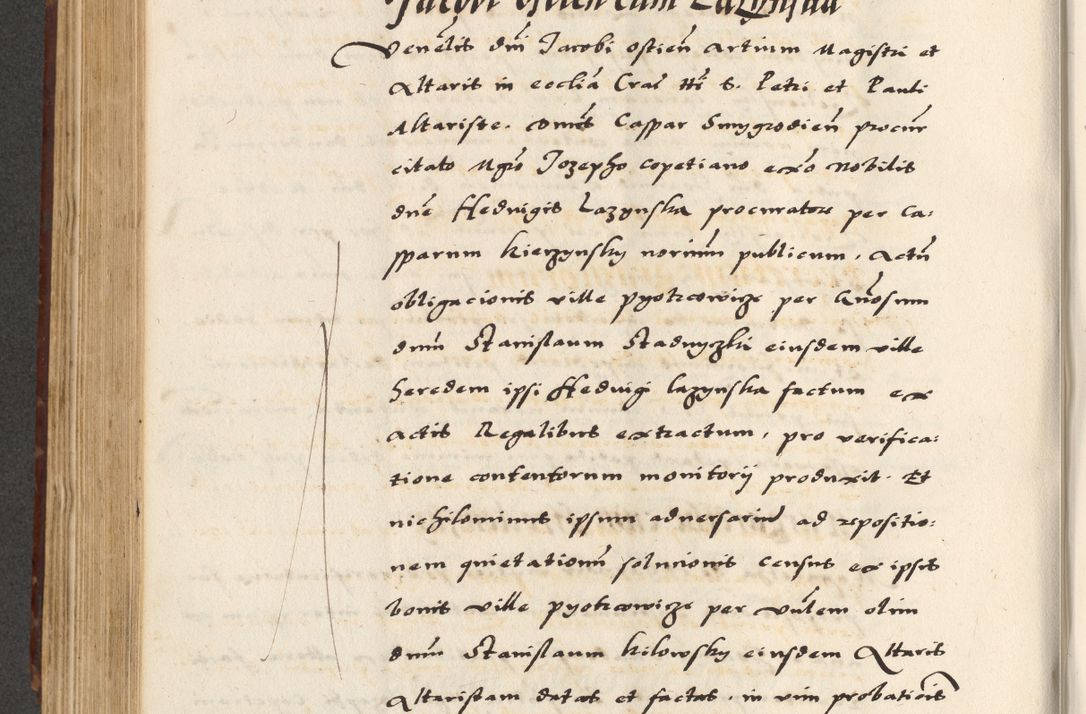 Jacobi Ostien cum Lazynska
Venelis dni Jacobi Ostien Artium Magistri et
Altaris in ecclia Crac tti S. Petri et Pauli
Altariste. Comes Caspar Smygrodien procur
citato Mgro Jozepho Copetiano ex͞o Nobilis
dne Hedvigis Lazynska procuratore per Ca:
sparum Kierzynsky norium publicum, Actu
obligacionis ville Pyotrcowicze per Gnosum
dnm Stanislaum Stadnyczki eiusdem ville
heredem ipsi Hedvigi Lazynska factum ex
Actis Regalibus extractum, pro verifica:
tione contentorum monitorij produxit. Et
nichilominus ipsum adversariu ad repositio:
nem quietationu solucionis census ex ipsis
bonis ville Pyotrcowicze per vnlem olim
dnm Stanislaum Kilowsky eiusdem Altaris
Altaristam datas et factas. in vim probationis